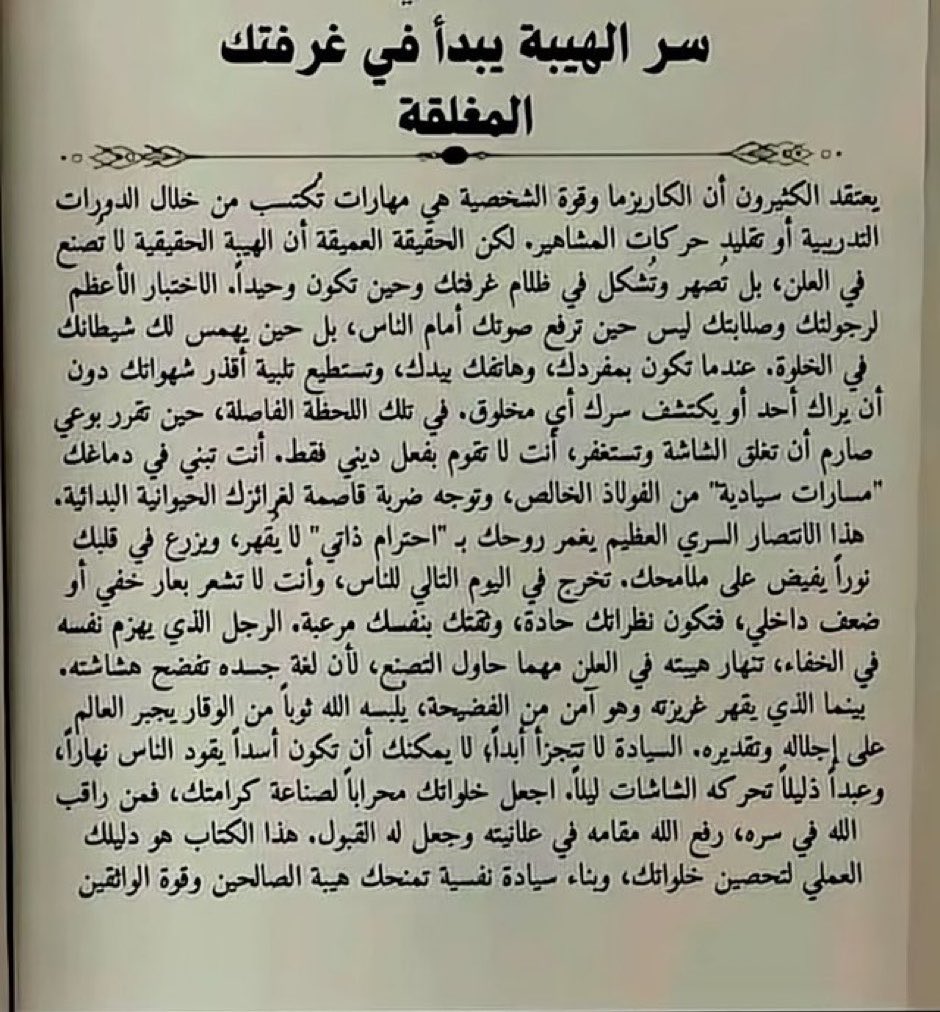 سر الهيبة يبدأ في غرفتك
المغلقة
يعتقد الكثيرون أن الكاريزما وقوة الشخصية هي مهارات تُكتسب من خلال الدورات
التدريبية أو تقليد حركات المشاهير. لكن الحقيقة العميقة أن الهيبة الحقيقية لا تُصنع
في العلن، بل تُصهر وتُشكل في ظلام غرفتك وحين تكون وحيداً. الاختبار الأعظم
لرجولتك وصلابتك ليس حين ترفع صوتك أمام الناس، بل حين يهمس لك شيطانك
في الخلوة. عندما تكون بمفردك، وهاتفك بيدك، وتستطيع تلبية أقذر شهواتك دون
أن يراك أحد أو يكتشف سرك أي مخلوق. في تلك اللحظة الفاصلة، حين تقرر بوعي
صارم أن تغلق الشاشة وتستغفر، أنت لا تقوم بفعل ديني فقط. أنت تبني في دماغك
"مسارات سيادية" من الفولاذ الخالص، وتوجه ضربة قاصمة لغرائزك الحيوانية البدائية.
هذا الانتصار السري العظيم يغمر روحك بـ "احترام ذاتي" لا يُقهر، ويزرع في قلبك
نوراً يفيض على ملامحك. تخرج في اليوم التالي للناس، وأنت لا تشعر بعار خفي أو
ضعف داخلي، فتكون نظراتك حادة، وثقتك بنفسك مرعبة. الرجل الذي يهزم نفسه
في الخفاء، تنهار هيبته في العلن مهما حاول التصنع، لأن لغة جسده تفضح هشاشته.
بينما الذي يقهر غريزته وهو آمن من الفضيحة، يلبسه الله ثوباً من الوقار يجبر العالم
على إجلاله وتقديره. السيادة لا تتجزأ أبداً؛ لا يمكنك أن تكون أسداً يقود الناس نهاراً،
وعبداً ذليلاً تحركه الشاشات ليلاً. اجعل خلواتك محراباً لصناعة كرامتك، فمن راقب
الله في سره، رفع الله مقامه في علانيته وجعل له القبول. هذا الكتاب هو دليلك
العملي لتحصين خلواتك، وبناء سيادة نفسية تمنحك هيبة الصالحين وقوة الواثقين